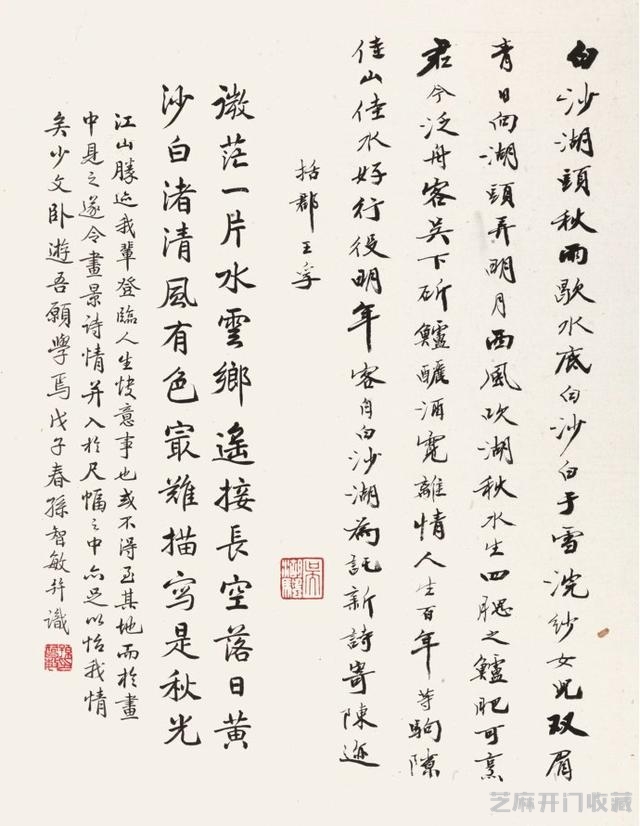 白沙湖頭秋雨歇水底白沙白于雪浣紗女児双眉
青日向湖頭弄明月西風吹湖秋水生四腮之鱸肥可烹
君今泛舟客吴下斫鱸釃酒寛離情人生百年等駒隙
佳山佳水好行役明年客自白沙湖為託新詩寄陳迹
括郡王孚
微茫一片水雲鄉遙接長空落日黄
沙白渚清風有色寂難描寫是秋光
江山勝迹我輩登臨人生快意事也或不得至其地而於畫
中見之遂令畫景詩情并入於尺幅之中亦足以怡我情
矣少文卧遊吾願學焉戊子春孫智敏并識
芝麻开门收藏